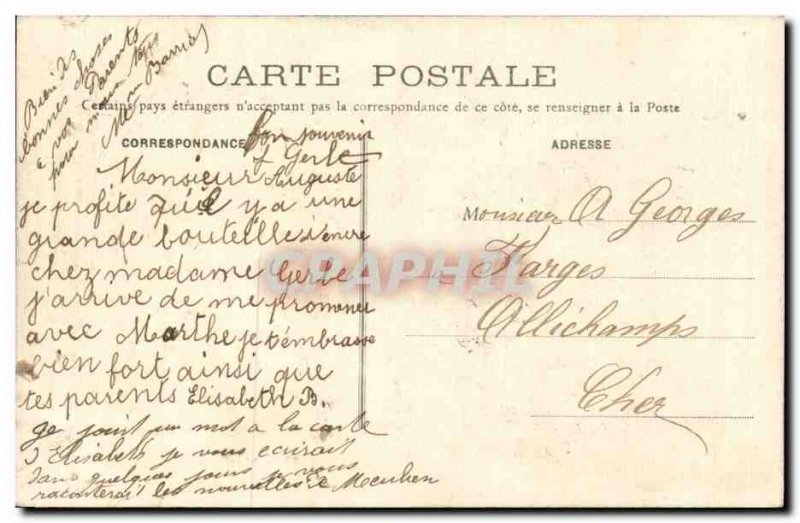 Bien des
bonnes choses
a vos Parents
pour nous tous
Mme Barrios
CARTE POSTALE
Certains pays étrangers n'acceptant pas la correspondance de ce côté, se renseigner à la Poste
CORRESPONDANCE
Bon souvenir
Gerbe
Monsieur Auguste
je profite qu'il y a une
grande bouteille d'encre
chez madame Gerbe
j'arrive de me promener
avec Marthe je t'embrasse
bien fort ainsi que
tes parents Elisabeth B.
je joint un mot a la carte
d'Elisabeth je vous ecrirait
dans quelques jours je vous
raconterai les nouvelles de
ADRESSE
Monsieur A Georges
à Farges
Allichamps
Cher
CPAPHIL